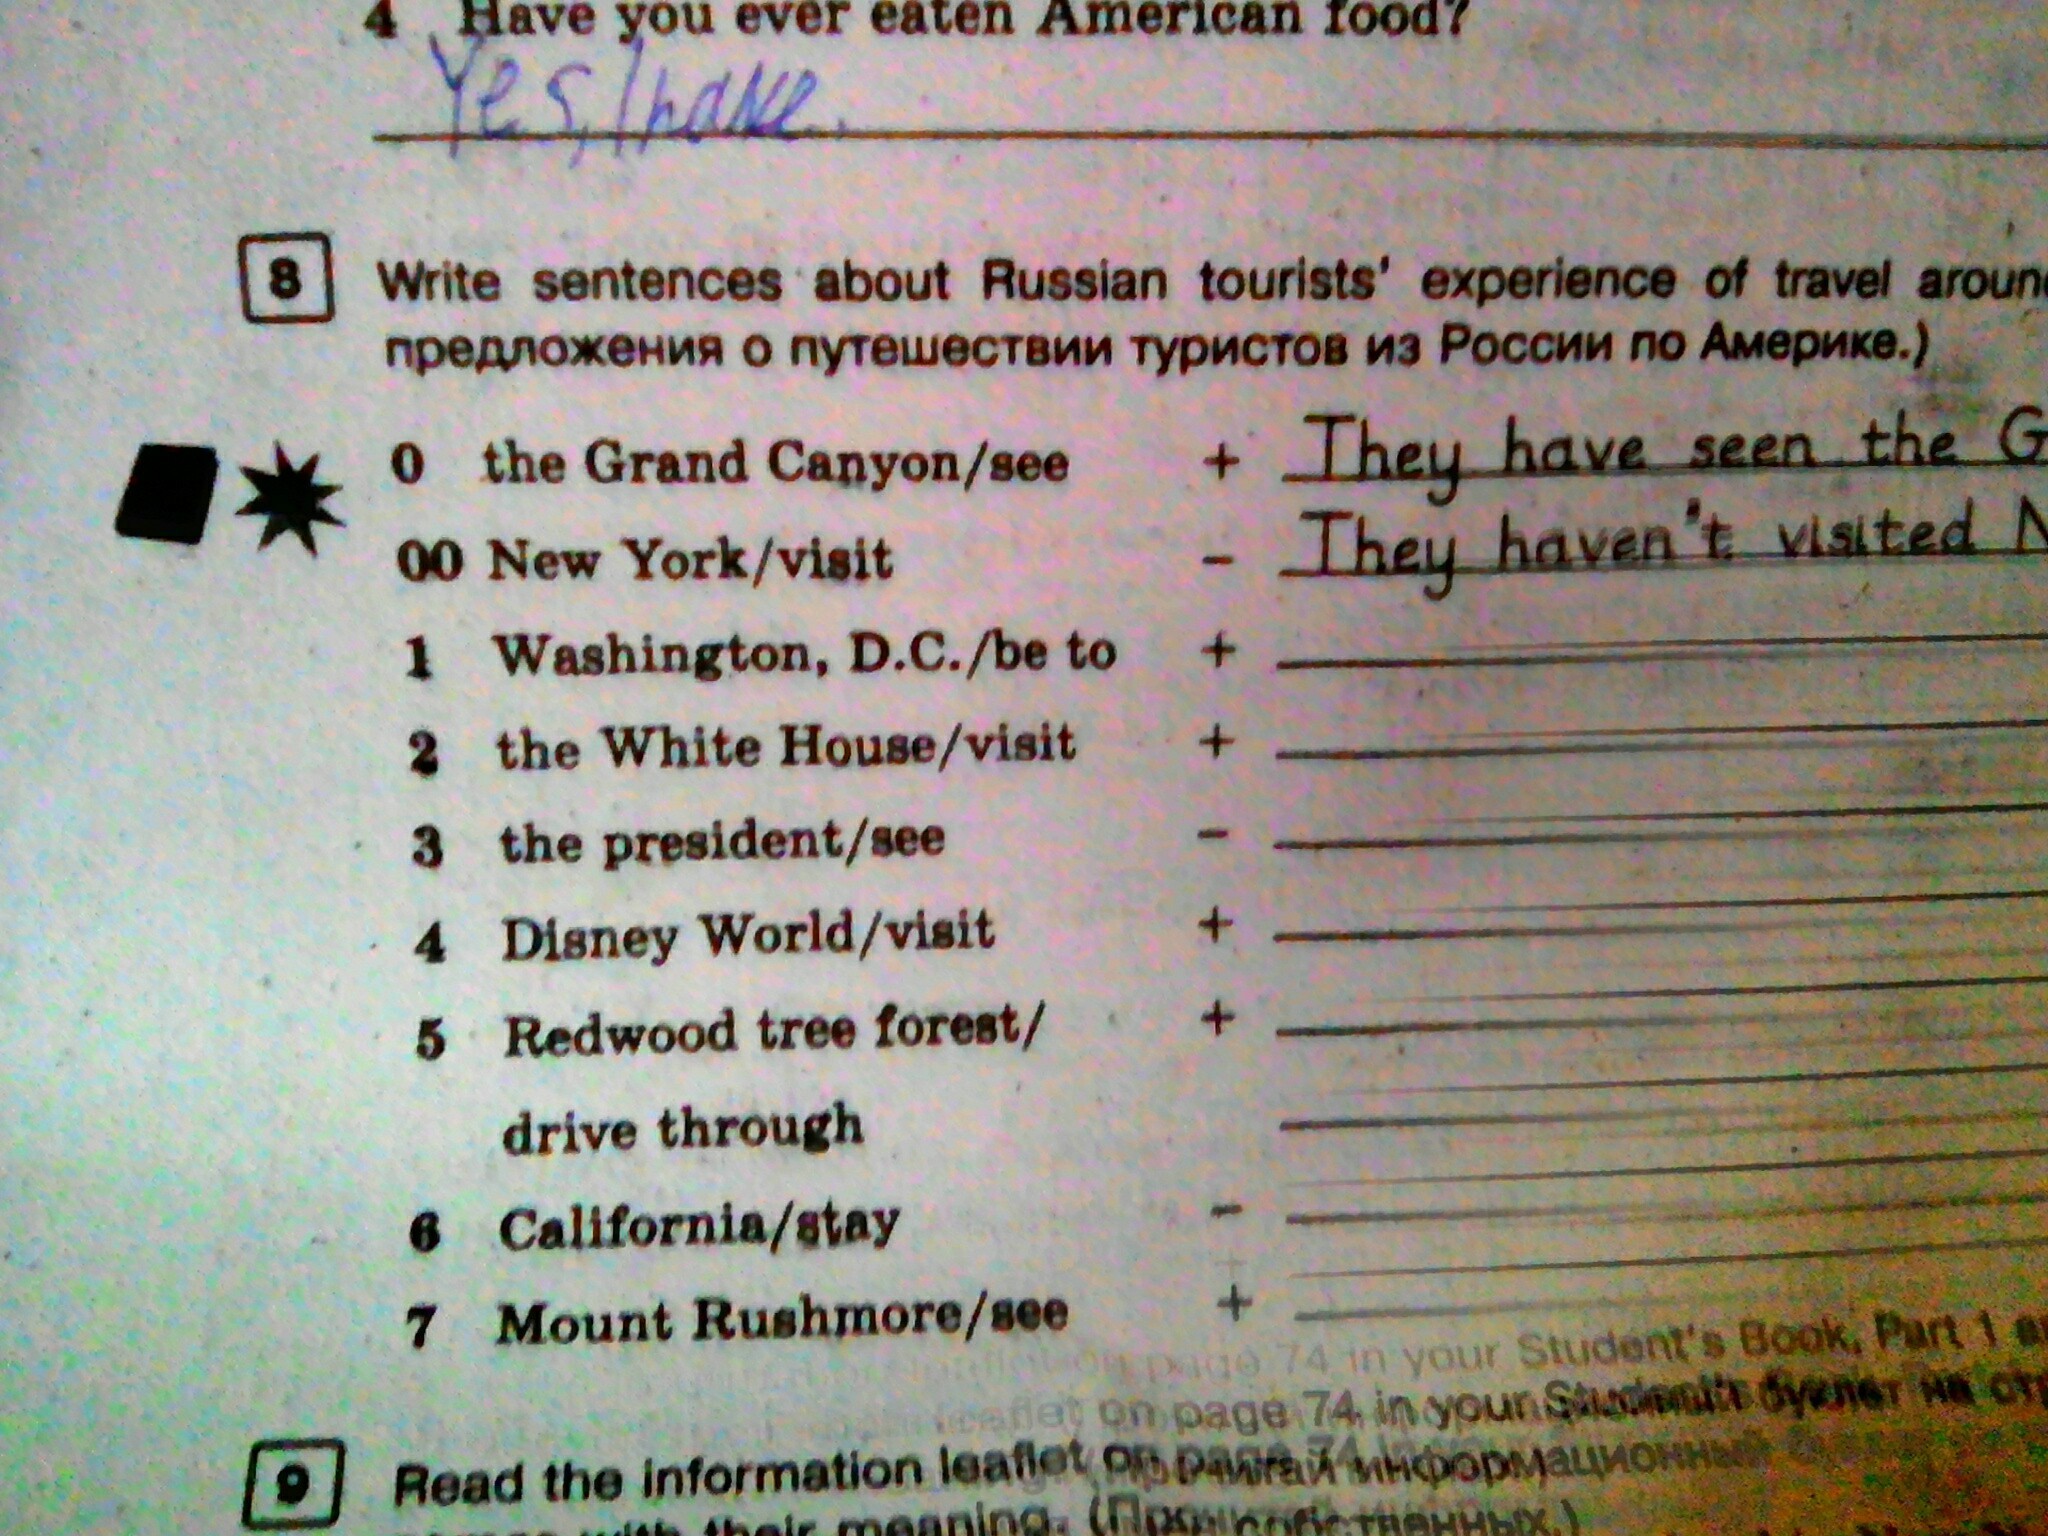 4 Have you ever eaten American food?
Yes, I have.
8 Write sentences about Russian tourists' experience of travel around
предложения о путешествии туристов из России по Америке.)
0 the Grand Canyon/see + They have seen the G
00 New York/visit - They haven't visited N
1 Washington, D.C./be to +
2 the White House/visit +
3 the president/see -
4 Disney World/visit +
5 Redwood tree forest/ +
drive through
6 California/stay -
7 Mount Rushmore/see +
on page 74 in your Student's Book, Part 1
leaflet on page 74 in your Student's буклет на
9 Read the information leaflet on page 74 информационный
with their meaning.